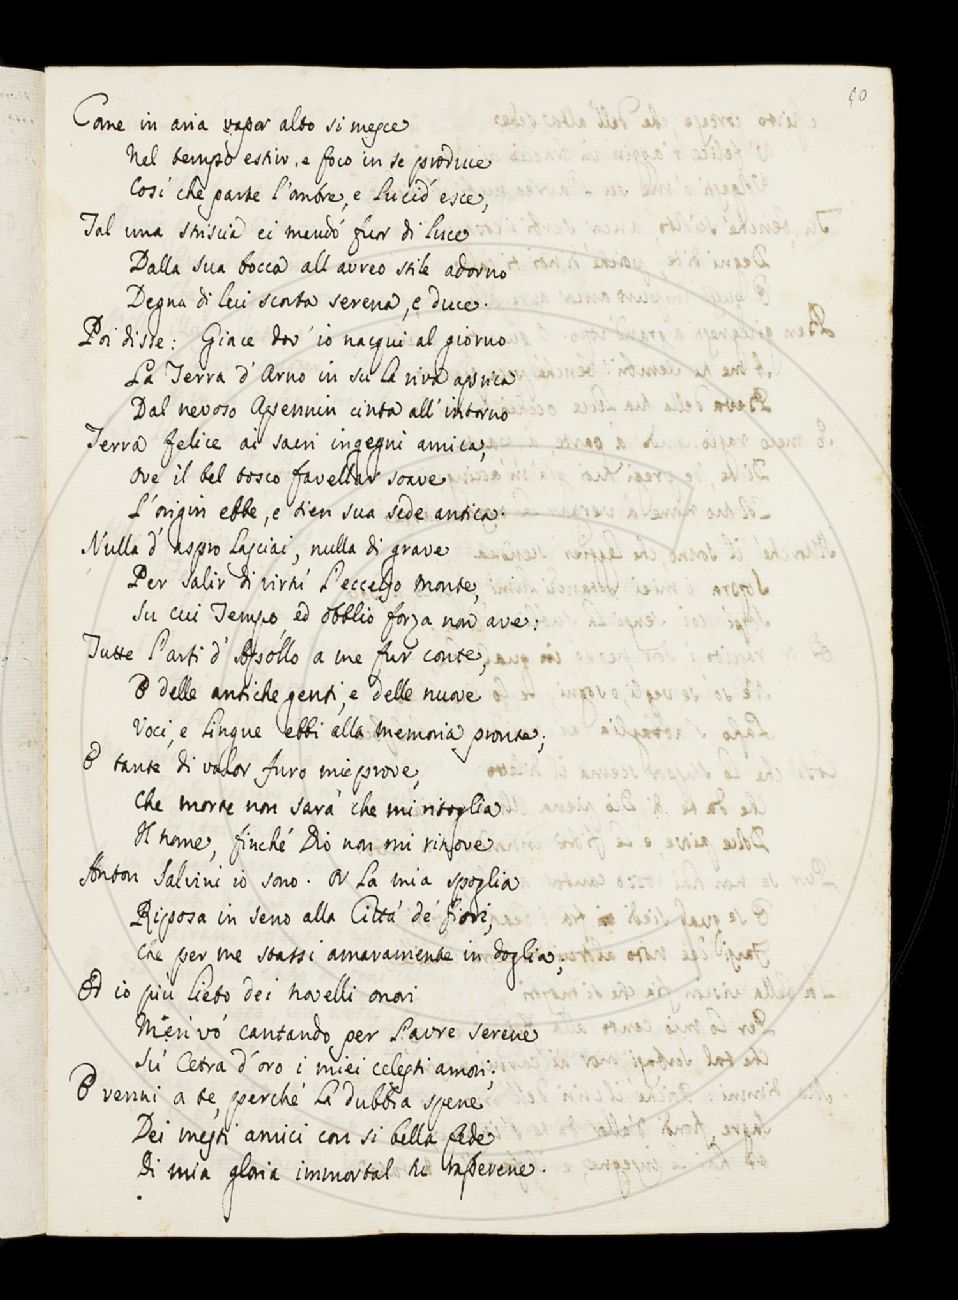 60
Come in aria vapor alto si mesce
Nel tempo estivo, e foco in se produce
Così che parte l'ombre, e lucid' esce,
Tal una striscia ei mandò fuor di luce
Dalla sua bocca all' aureo stile adorno
Degna di lui scorta serena, e duce.
Poi disse: Giace dov' io nacqui al giorno
La Terra d' Arno in su la riva aprica
Dal nevoso Apennin cinta all' intorno
Terra felice ai sacri ingegni amica,
Ove il bel tosco favellar soave
L'origin ebbe, e tien sua sede antica.
Nulla d' aspro lasciai, nulla di grave
Per salir di virtù l'eccelso monte,
Su cui Tempo, ed obblio forza non ave:
Tutte l'arti d' Apollo a me fur conte,
E delle antiche genti, e delle nuove
Voci, e lingue ebbi alla memoria pronte;
E tante di valor furo mie prove,
Che morte non sarà che mi ritoglia
Il nome, finché Dio non mi rinove
Anton Salvini io sono. Or la mia spoglia
Riposa in seno alla Città de' fiori,
Che per me stassi amaramente in doglia,
Ed io più lieto dei novelli onori
M'en vò cantando per l'aure serene
Sù Cetra d'oro i miei celesti amori;
E venni a te, perché la dubbia spene
Dei mesti amici con si bella fede
Di mia gloria immortal